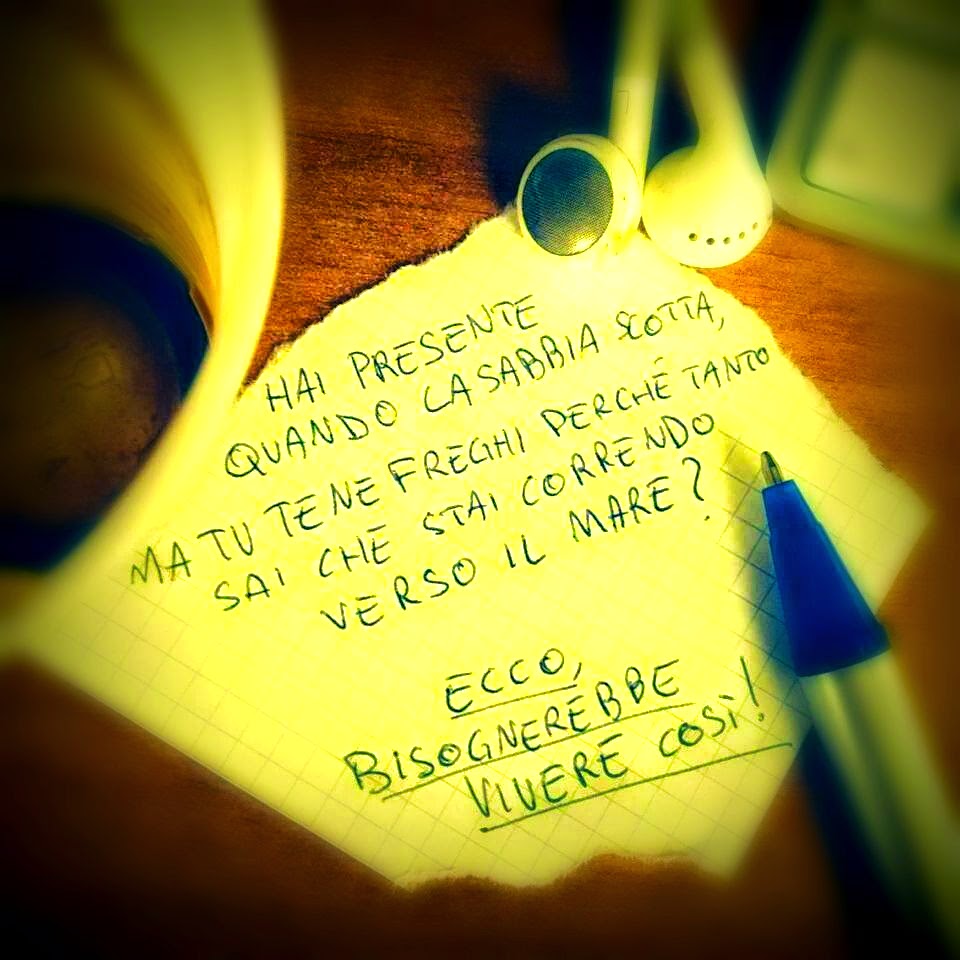 HAI PRESENTE
QUANDO LA SABBIA SCOTTA,
MA TU TE NE FREGHI PERCHÉ TANTO
SAI CHE STAI CORRENDO
VERSO IL MARE?
ECCO,
BISOGNEREBBE
VIVERE COSÌ!